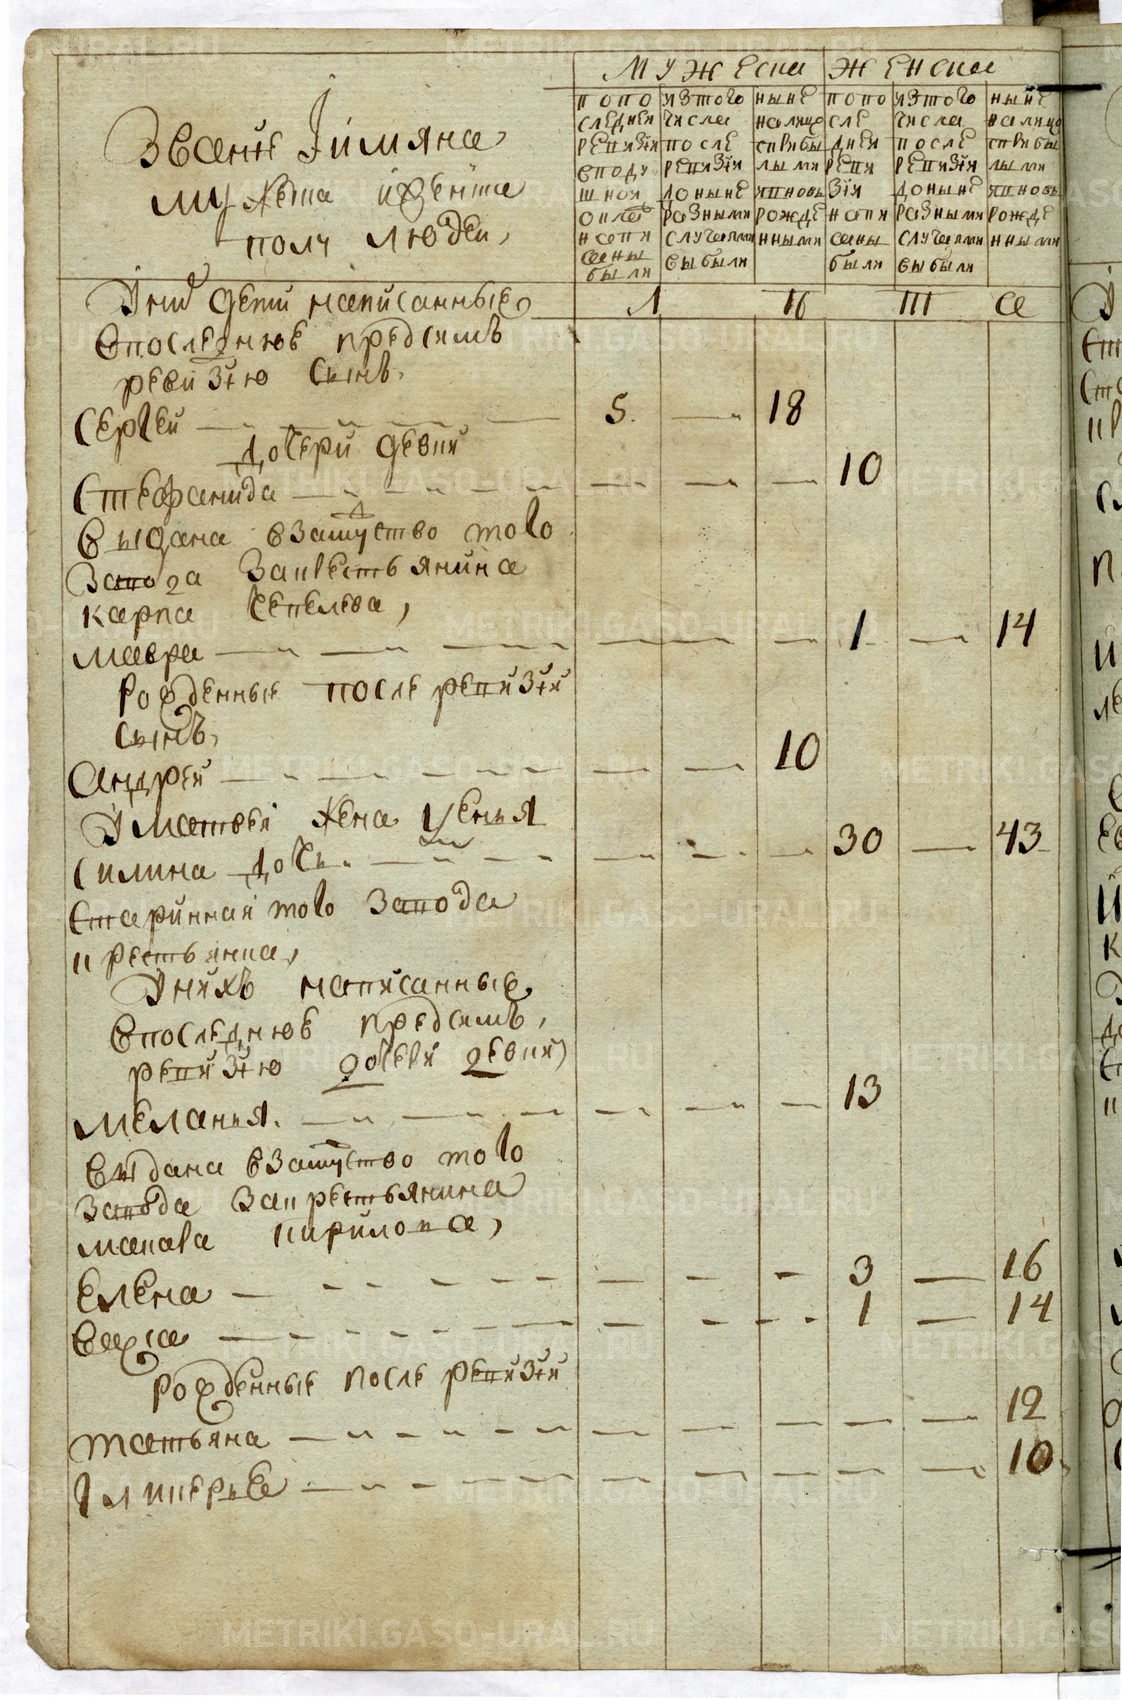 Званіе Їимяна
мужеска иженска
полу людей,
МУЖеска
ЖЕНска
попо следней ревизіи вподушной оклад написаны были
изтого числа после ревизіи доныне разными случаями выбыли
ныне налицо сприбылыми ивновь рожденными
попо сле дней ревизія написаны были
изтого числа после ревизіи доныне разными случаями выбыли
ныне налицо сприбылыми ивновь рожденными
Уних дети написанные
впоследнюю предсимъ
ревизію сынъ,
Сергей 5. 18
дочери девки
Стефанида 10
выдана взамужство того
завода закрестьянина
карпа
мавра 1 14
Рожденные после ревизіи
сынъ,
андрей 10
Уматвея жена Ксенья 30 43
Силина дочь
старинная того завода
крестьянка,
Унихъ написанные
впоследнюю предсимъ,
ревизію дочери девки
меланья. 13
выдана взамужство того
завода закрестьянина
макара кирилова,
елена 3 16
васса 1 14
Рожденные после ревизіи
татьяна 12
Гликерья 10
METRIKI.GASO-URAL.RU